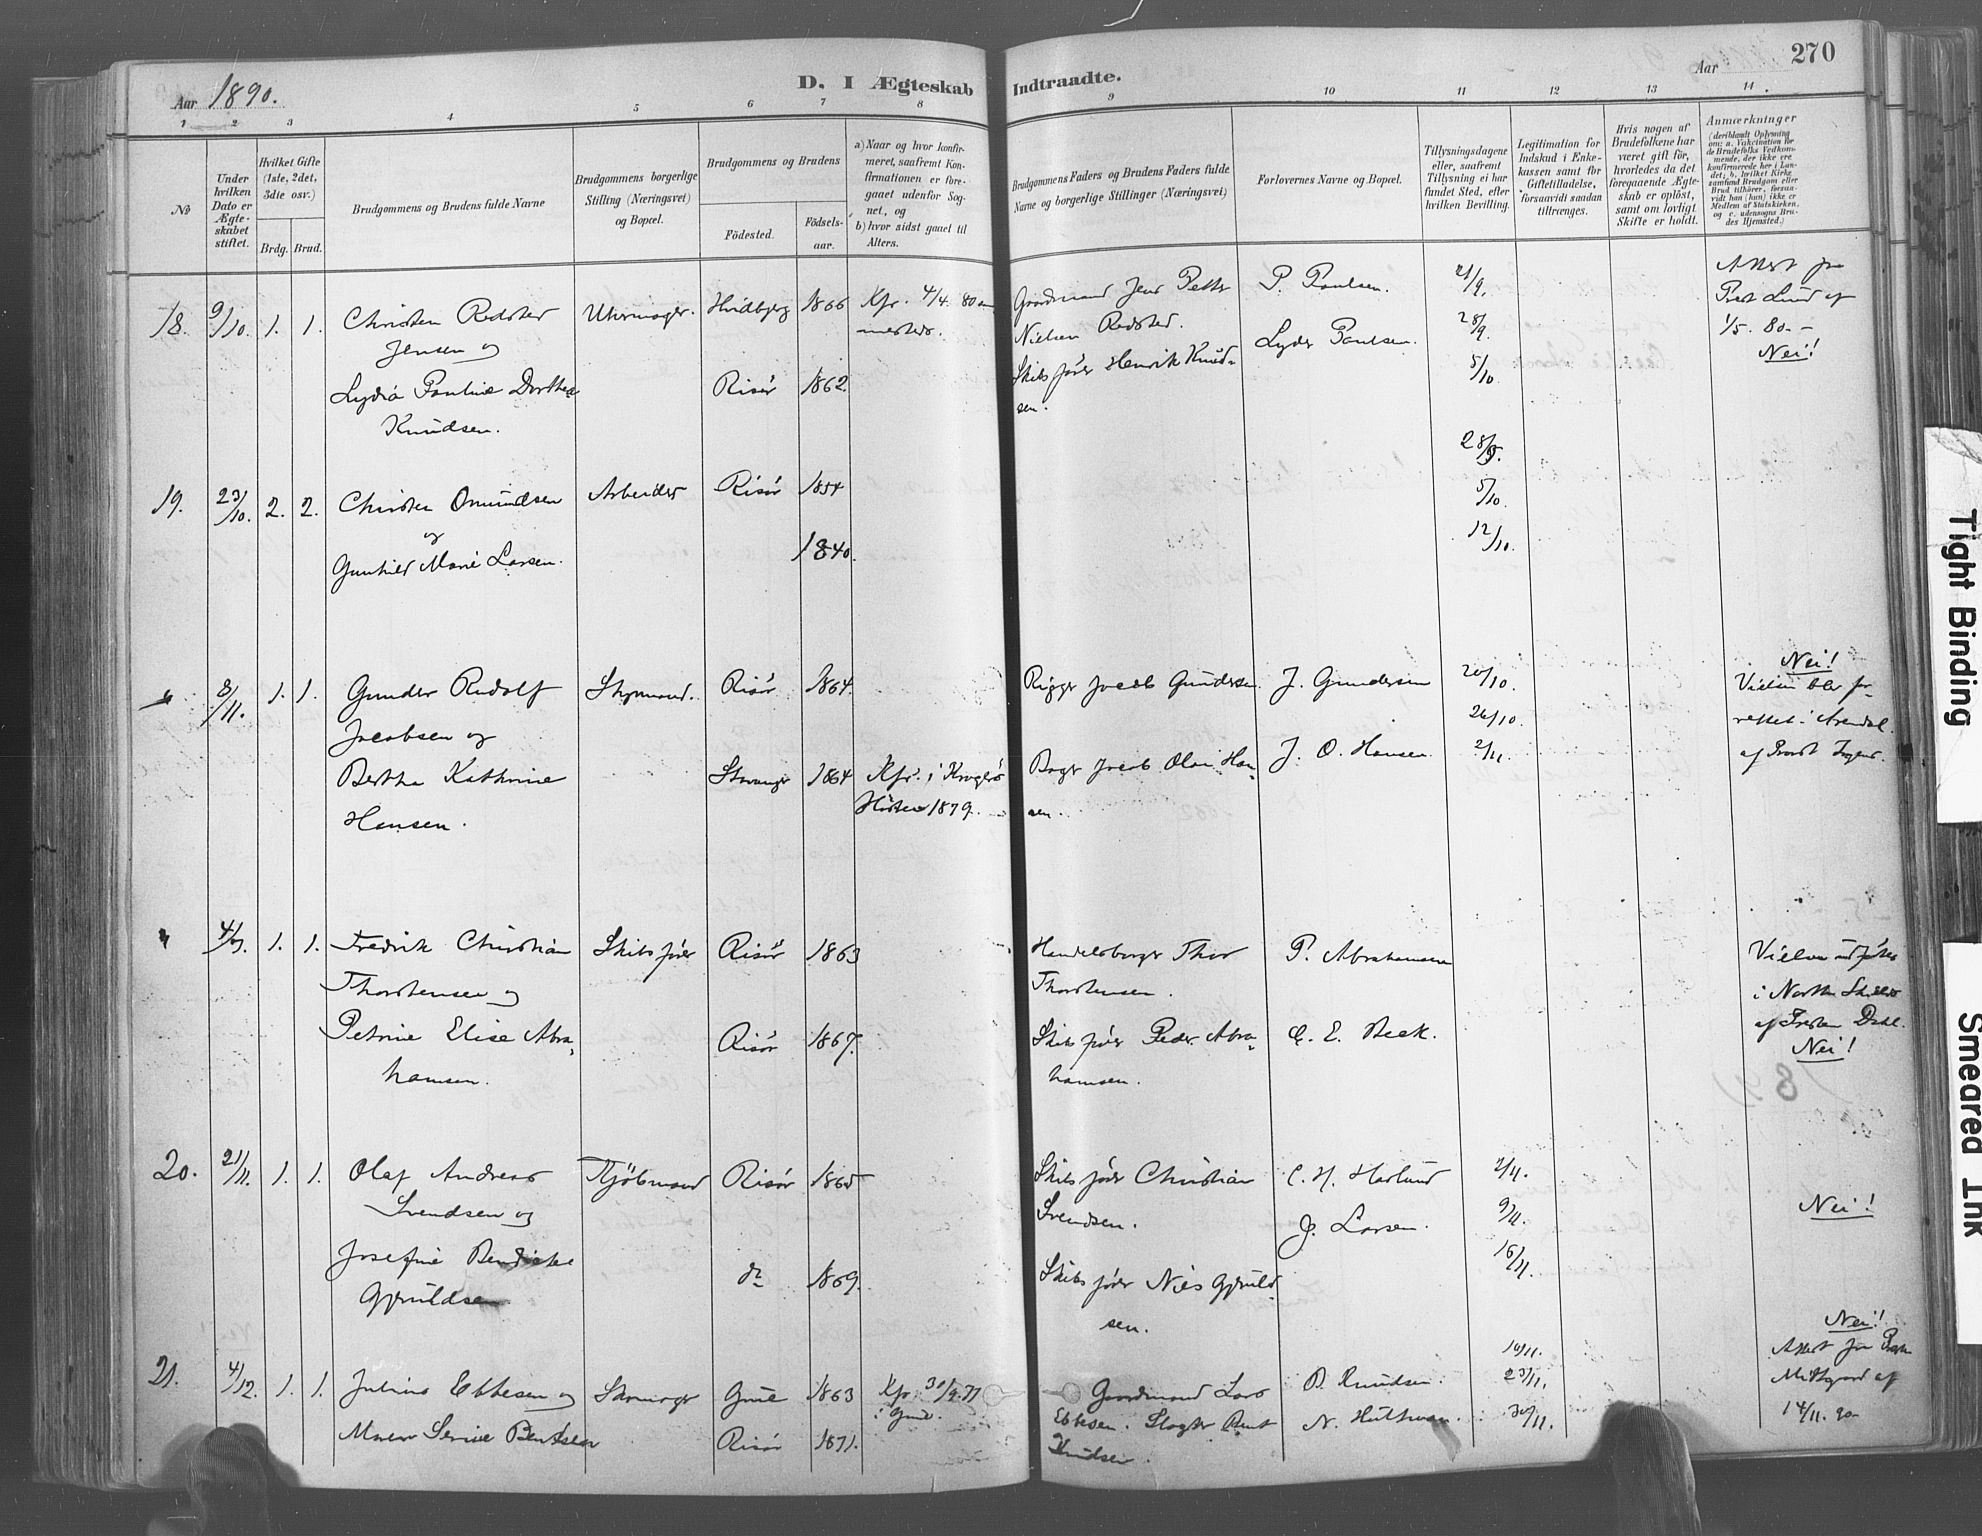 Aar 1890.
D. I Ægteskab Indtraadte.
Aar
270
1 2 3 4 5 6 7 8 9 10 11 12 13 14
No
Under hvilken Dato er Ægteskabet stiftet.
Hvilket Gifte (1ste, 2det, 3die osv.)
Brdg. Brud.
Brudgommens og Brudens fulde Navne
Brudgommens borgerlige Stilling (Næringsvei) og Bopæl.
Brudgommens og Brudens
Födested.
Födselsaar.
a) Naar og hvor konfirmeret, saafremt Konfirmationen er foregaaet udenfor Sognet, og
b) hvor sidst gaaet til Alters.
Brudgommens Faders og Brudens Faders fulde Navne og borgerlige Stillinger (Næringsvei)
Forlovernes Navne og Bopæl.
Tillysningsdagene eller, saafremt Tillysning ei har fundet Sted, efter hvilken Bevilling.
Legitimation for Indskud i Enkekassen samt for Giftetilladelse, forsaavidt saadan tiltrænges.
Hvis nogen af Brudefolkene har været gift för, hvorledes da det foregaaende Ægteskab er oplöst, samt om lovligt Skifte er holdt.
Anmærkninger
18. 9/10. 1. 1. Christen Redsted Uhrmager. Hvidbjerg 1866 Kfr. 4/4. 80
Jensen og
Lydia Pauline Dorthea Risør 1862.
Knudsen.
Gaardmand Jens Peter P. Paulsen. 21/9.
Nielsen Redsted. 28/9.
Skibsfører Henrik Knud- Lyder Paulsen. 5/10.
sen.
Attest fra
Præst Lund af
1/5. 80.-
Nei!
19. 23/10. 2. 2. Christen Omundsen Arbeider Risør 1854
og
Gunhild Marie Larsen. 1840.
28/9.
5/10.
12/10.
8/11. 1. 1. Gunder Rudolf Styrmand. Risør 1864.
Jacobsen og
Bertha Kathrine Stavanger 1864 Kfr. i Kragerø
Hansen. Høsten 1879.
Rigger Jacob Gundersen J. Gundersen 20/10.
26/10.
Bager Jacob Olai Han- J. O. Hansen 2/11.
sen.
Nei!
Vielsen blev for-
rettet i Arendal
af Provst
1. 1. Fredrik Christian Skibsfører Risør 1863
Thorstensen og
Petrine Elise Abra- Risør 1867.
hamsen.
Handelsborger Thor P. Abrahamsen
Thorstensen.
Skibsfører Peder Abra- C. E. Beck.
hamsen.
Vielsen udført
i North Shields
af Presten Dahl.
Nei!
20. 21/11. 1. 1. Olaf Andreas Risør 1865
Svendsen og
Josefine Bendikte do 1869.
Gjeruldsen
Skibsfører Christian C. H. Haslund 2/11.
Svendsen. J. Larsen. 9/11.
16/11.
Skibsfører Nils Gjeruld-
sen.
Nei!
21. 4/12. 1. 1. Julius Ebbesen og Skomager 1863 Kfr. 30/9.77
Maren Serine Bentsen Risør 1871.
Gaardmand Lars B. Knudsen. 16/11.
Ebbesen. Slagter Bent N. Hultman. 23/11.
Knudsen. 30/11.
Nei!
Attest fra Præsten
Midtgaard af
14/11. 90
Tight Binding
Smeared Ink